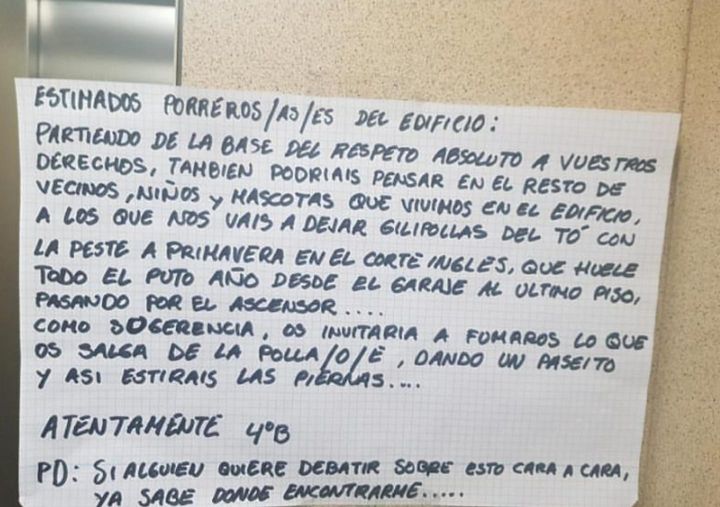 ESTIMADOS PORREROS/AS/ES DEL EDIFICIO:
PARTIENDO DE LA BASE DEL RESPETO ABSOLUTO A VUESTROS
DERECHOS, TAMBIEN PODRIAIS PENSAR EN EL RESTO DE
VECINOS, NIÑOS Y MASCOTAS QUE VIVIMOS EN EL EDIFICIO,
A LOS QUE NOS VAIS A DEJAR GILIPOLLAS DEL TÓ CON
LA PESTE A PRIMAVERA EN EL CORTE INGLES, QUE HUELE
TODO EL PUTO AÑO DESDE EL GARAJE AL ULTIMO PISO,
PASANDO POR EL ASCENSOR....
COMO SOGERENCIA, OS INVITARIA A FUMAROS LO QUE
OS SALGA DE LA POLLA/O/E, DANDO UN PASEITO
Y ASI ESTIRAIS LAS PIERNAS....
ATENTAMENTE 4ºB
PD: SI ALGUIEN QUIERE DEBATIR SOBRE ESTO CARA A CARA,
YA SABE DONDE ENCONTRARME.....